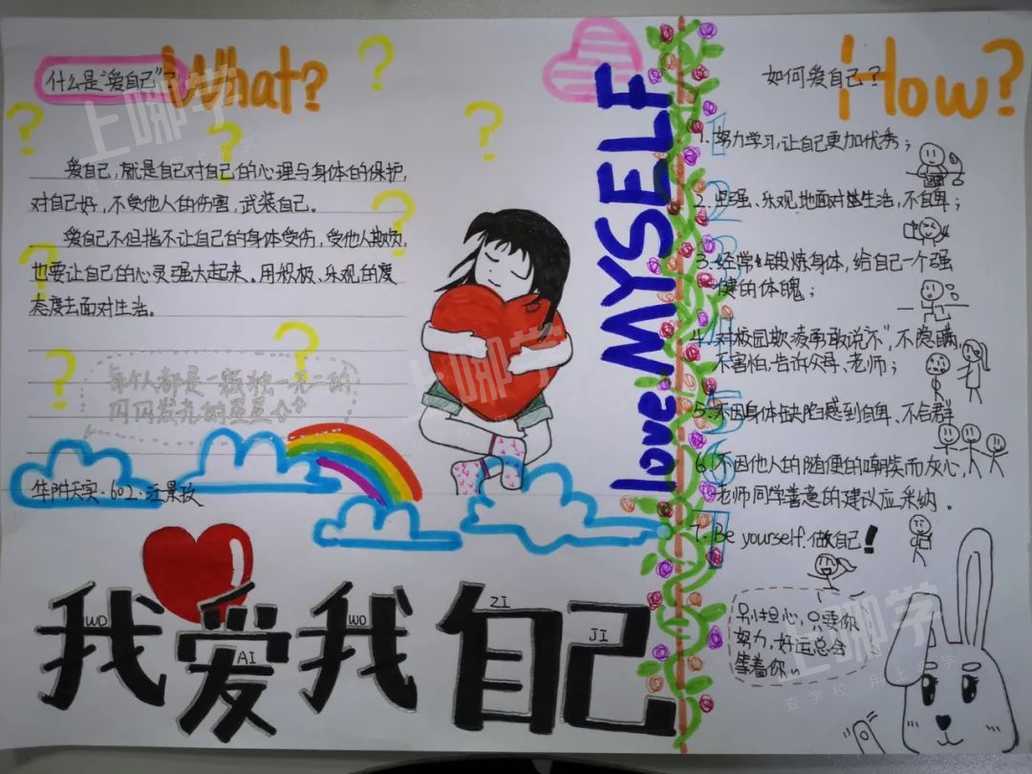 什么是“爱自己”？
What?
爱自己，就是自己对自己的心理与身体的保护，
对自己好，不受他人的伤害，武装自己。
爱自己不但指不让自己的身体受伤，受他人欺负，
也要让自己的心灵强大起来。用积极、乐观的度
态度去面对生活。
每个人都是一颗独一无二的
闪闪发光的星星
602
love MYSELF
如何爱自己？
How?
1. 努力学习，让自己更加优秀；
2. 坚强、乐观地面对生活，不自卑；
3. 经常锻炼身体，给自己一个强
健的体魄；
4. 对校园欺凌勇敢说“不”，不隐瞒，
不害怕，告诉父母、老师；
5. 不因身体缺陷感到自卑、不合群
6. 不因他人的随便的嘲笑而灰心，
老师同学善意的建议应采纳。
7. Be yourself. 做自己！
别担心，只要你
努力，好运总会
等着你
我爱我自己
WO AI WO ZI JI
上哪学
上哪学
上哪学
查学校 用上哪学